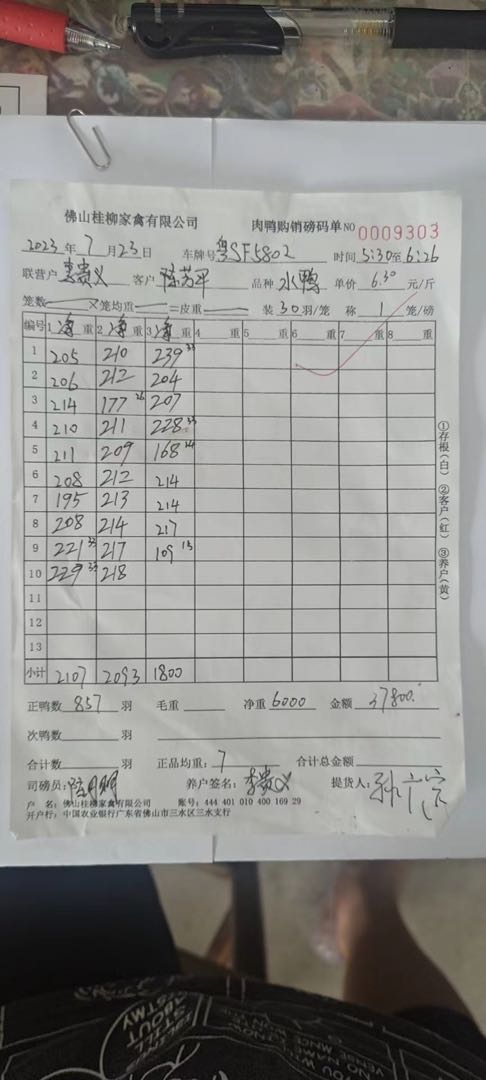 佛山桂柳家禽有限公司 肉鸭购销磅码单 NO 0009303
2023年7月23日 车牌号 粤SF5802 时间 5:30至6:26
联营户 李贵义 客户 陈芳平 品种 水鸭 单价 6.30 元/斤
笼数 ×笼均重 =皮重 装30羽/笼 称 1 笼/磅
编号 1 净重 2 净重 3 净重 4 重 5 重 6 重 7 重 8 重
1 205 210 239 33
2 206 212 204
3 214 177 26 207
4 210 211 228 33
5 211 209 168 24
6 208 212 214
7 195 213 214
8 208 214 217
9 221 33 217 109 15
10 229 33 218
11
12
13
小计 2107 2093 1800
①存根(白) ②客户(红) ③养户(黄)
正鸭数 857 羽 毛重 净重 6000 金额 37800.
次鸭数 羽
合计数 羽 正品均重: 7 合计总金额
司磅员: 养户签名: 李贵义 提货人:
户 名: 佛山桂柳家禽有限公司 账号: 444 401 010 400 169 29
开户行: 中国农业银行广东省佛山市三水区三水支行